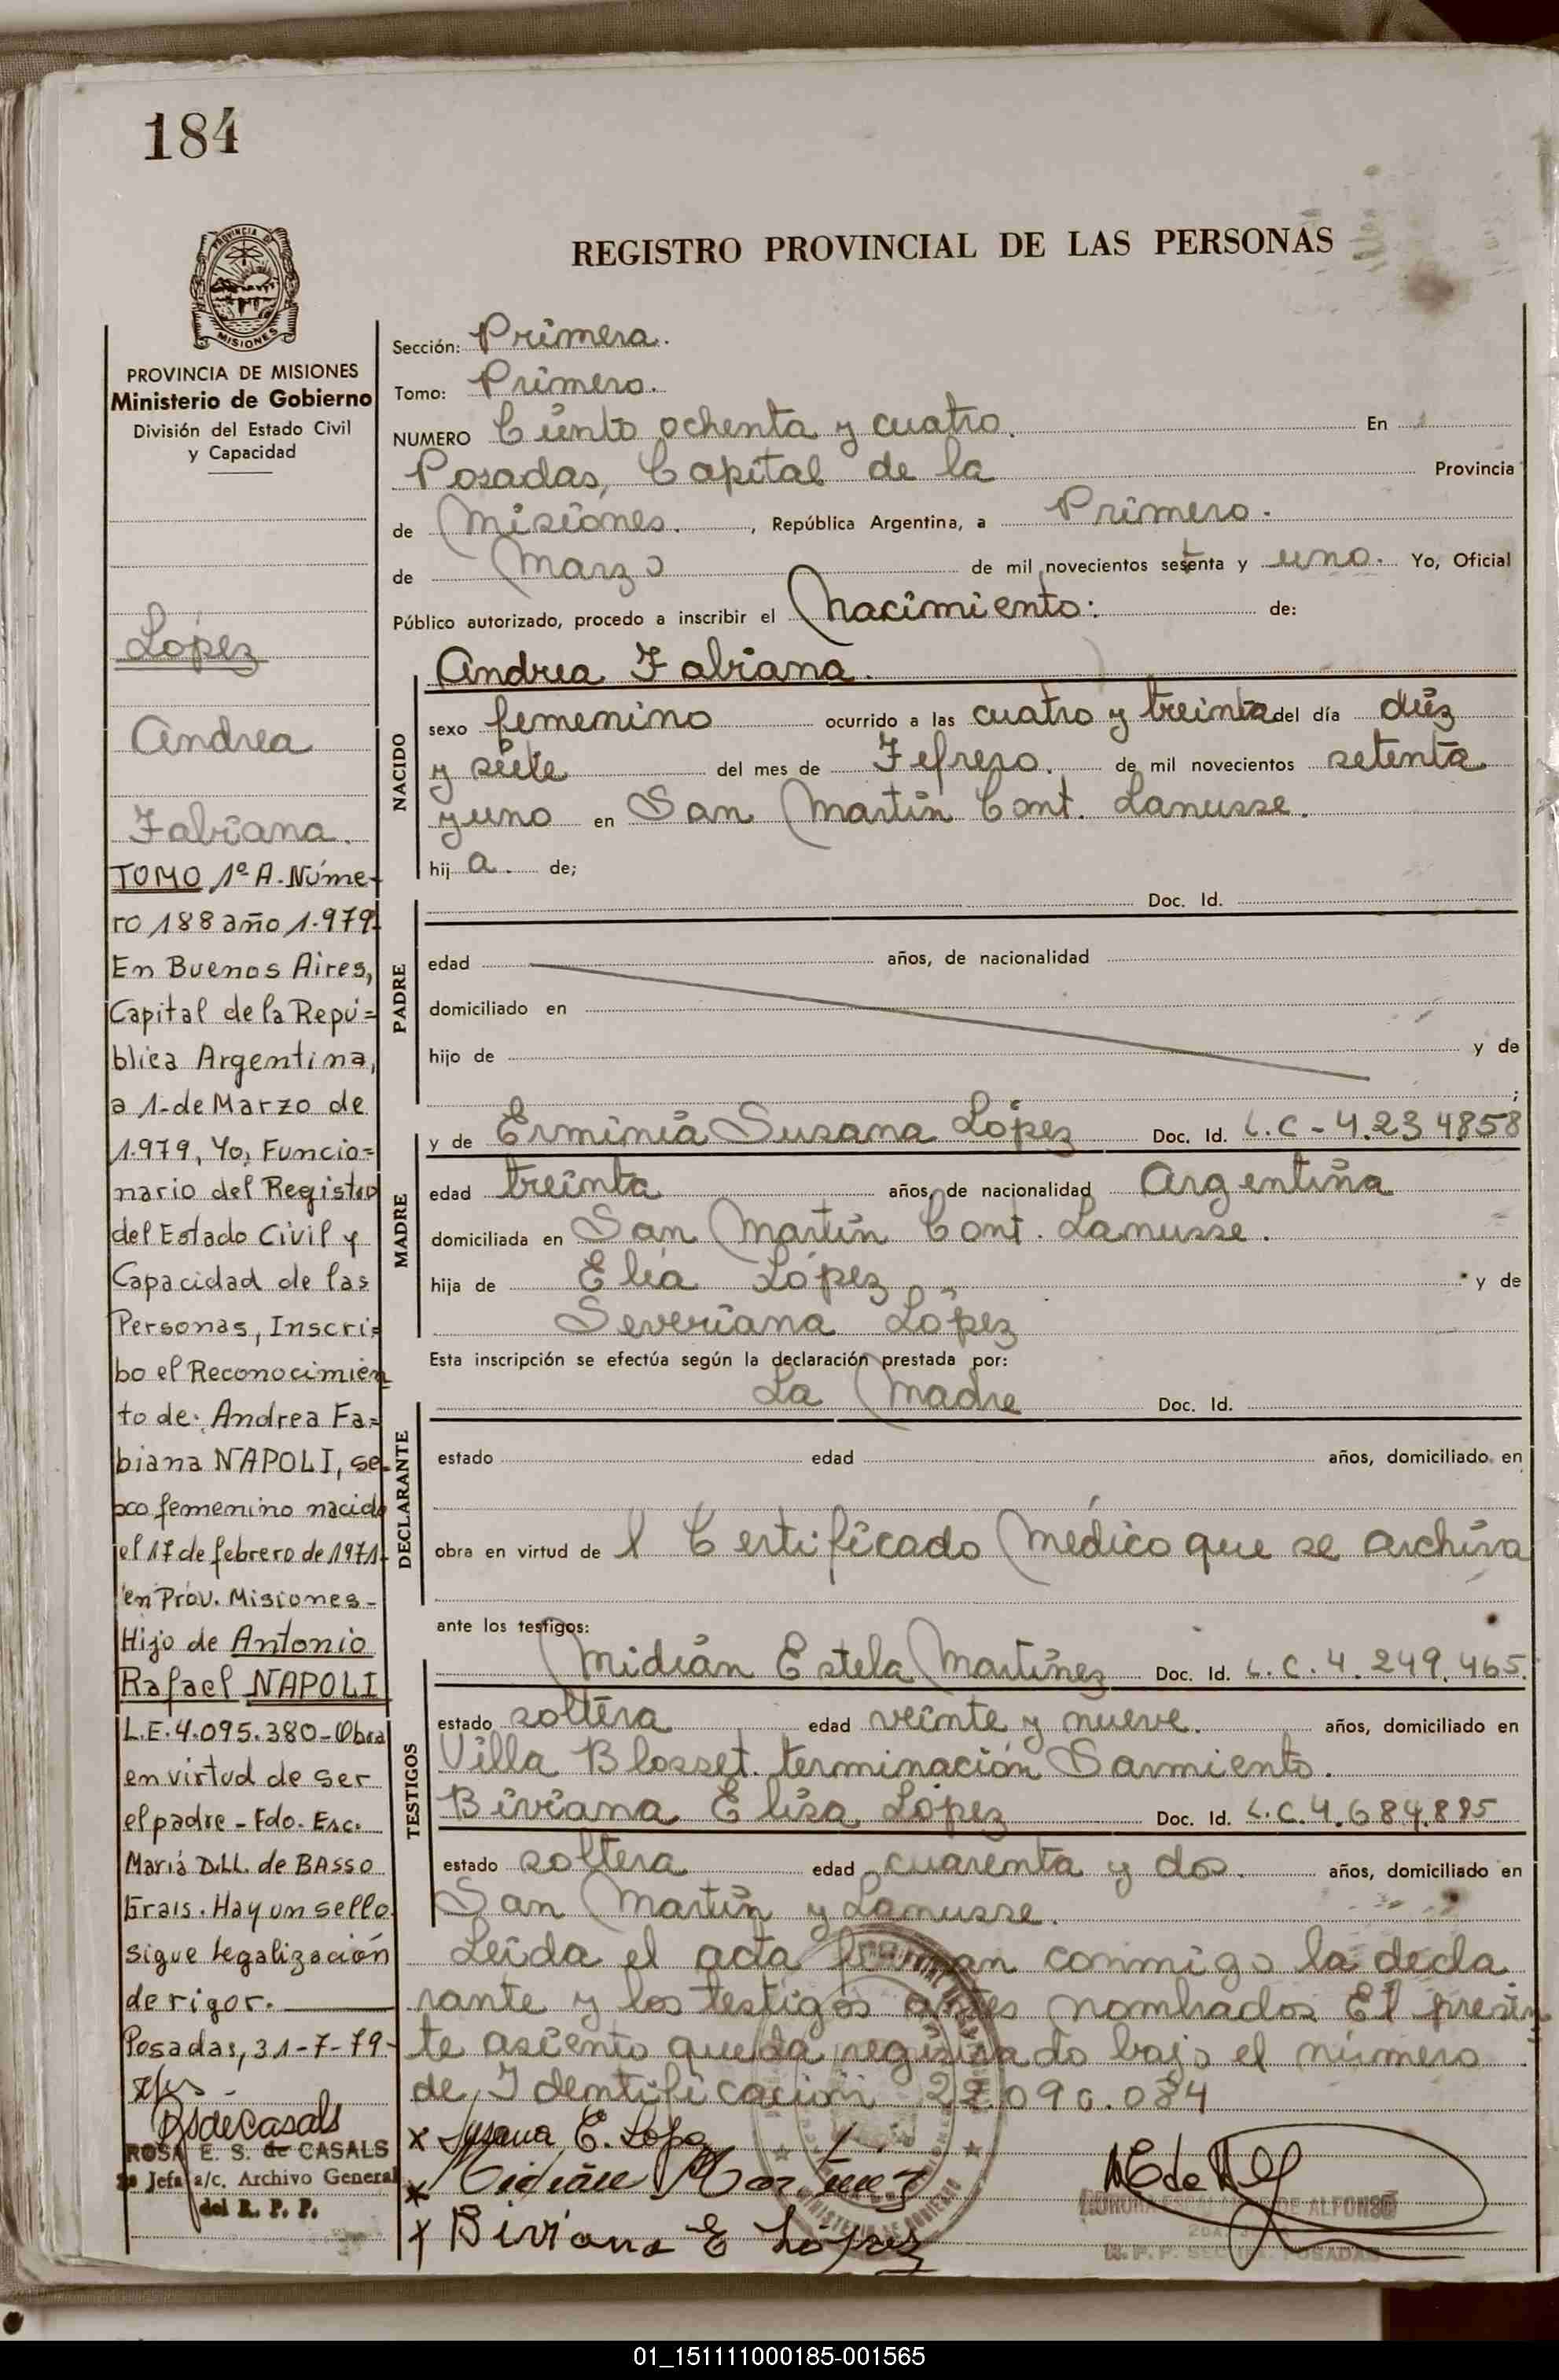 184
PROVINCIA DE
MISIONES
PROVINCIA DE MISIONES
Ministerio de Gobierno
División del Estado Civil
y Capacidad
López
Andrea
Fabiana.
TOMO 1º A. Núme-
ro 188 año 1.979.
En Buenos Aires,
Capital de la Repú=
blica Argentina,
a 1-de Marzo de
1.979, Yo, Funcio=
nario del Registro
del Estado Civil y
Capacidad de las
Personas, Inscri=
bo el Reconocimien
to de: Andrea Fa=
biana NAPOLI, se-
xo femenino nacido
el 17 de febrero de 1971-
en Prov. Misiones-
Hijo de Antonio
Rafael NAPOLI
L.E. 4.095.380-Obra
en virtud de ser
el padre - Fdo. Esc.
María D.LL. de BASSO
Grais. Hay un sello
sigue legalización
de rigor.
Posadas, 31-7-79-
ROSA E. S. de CASALS
Jefa a/c. Archivo General
del R. P. P.
REGISTRO PROVINCIAL DE LAS PERSONAS
Sección: Primera.
Tomo: Primero.
NUMERO Ciento ochenta y cuatro. En
Posadas, Capital de la Provincia
de Misiones., República Argentina, a Primero.
de Marzo de mil novecientos setenta y uno. Yo, Oficial
Público autorizado, procedo a inscribir el Nacimiento: de:
Andrea Fabiana.
NACIDO
sexo femenino ocurrido a las cuatro y treinta del día diez
y siete del mes de Febrero. de mil novecientos setenta
y uno en San Martín Cont. Lanusse.
hij a. de;
PADRE
Doc. Id.
edad años, de nacionalidad
domiciliado en
hijo de y de
;
MADRE
y de Erminia Susana López Doc. Id. L.C-4.234858
edad treinta años, de nacionalidad Argentina
domiciliada en San Martín Cont. Lanusse.
hija de Elia López y de
Severiana López
Esta inscripción se efectúa según la declaración prestada por:
DECLARANTE
La Madre Doc. Id.
estado edad años, domiciliado en
obra en virtud de l Certificado Médico que se archiva
ante los testigos:
TESTIGOS
Midián Estela Martínez Doc. Id. L.C.4.249.465.
estado soltera edad veinte y nueve. años, domiciliado en
Villa Blosset. terminación Sarmiento.
Biviana Elisa López Doc. Id. L.C.4.684.885
estado soltera edad cuarenta y dos. años, domiciliado en
San Martín y Lanusse.
Leida el acta firman conmigo la decla
rante y los testigos antes nombrados El presen
te asiento queda registrado bajo el número
de Identificación 22.090.084
x Susana E. Lopez
x Midián Martínez
x Biviana E López
DE ALFONSO
01_151111000185-001565